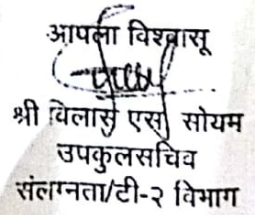 आपला विश्वासू
श्री विलास एस सोयम
उपकुलसचिव
संलग्नता/टी-२ विभाग